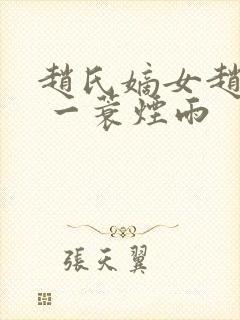 趙氏嫡女趙
一蓑煙雨
張天翼